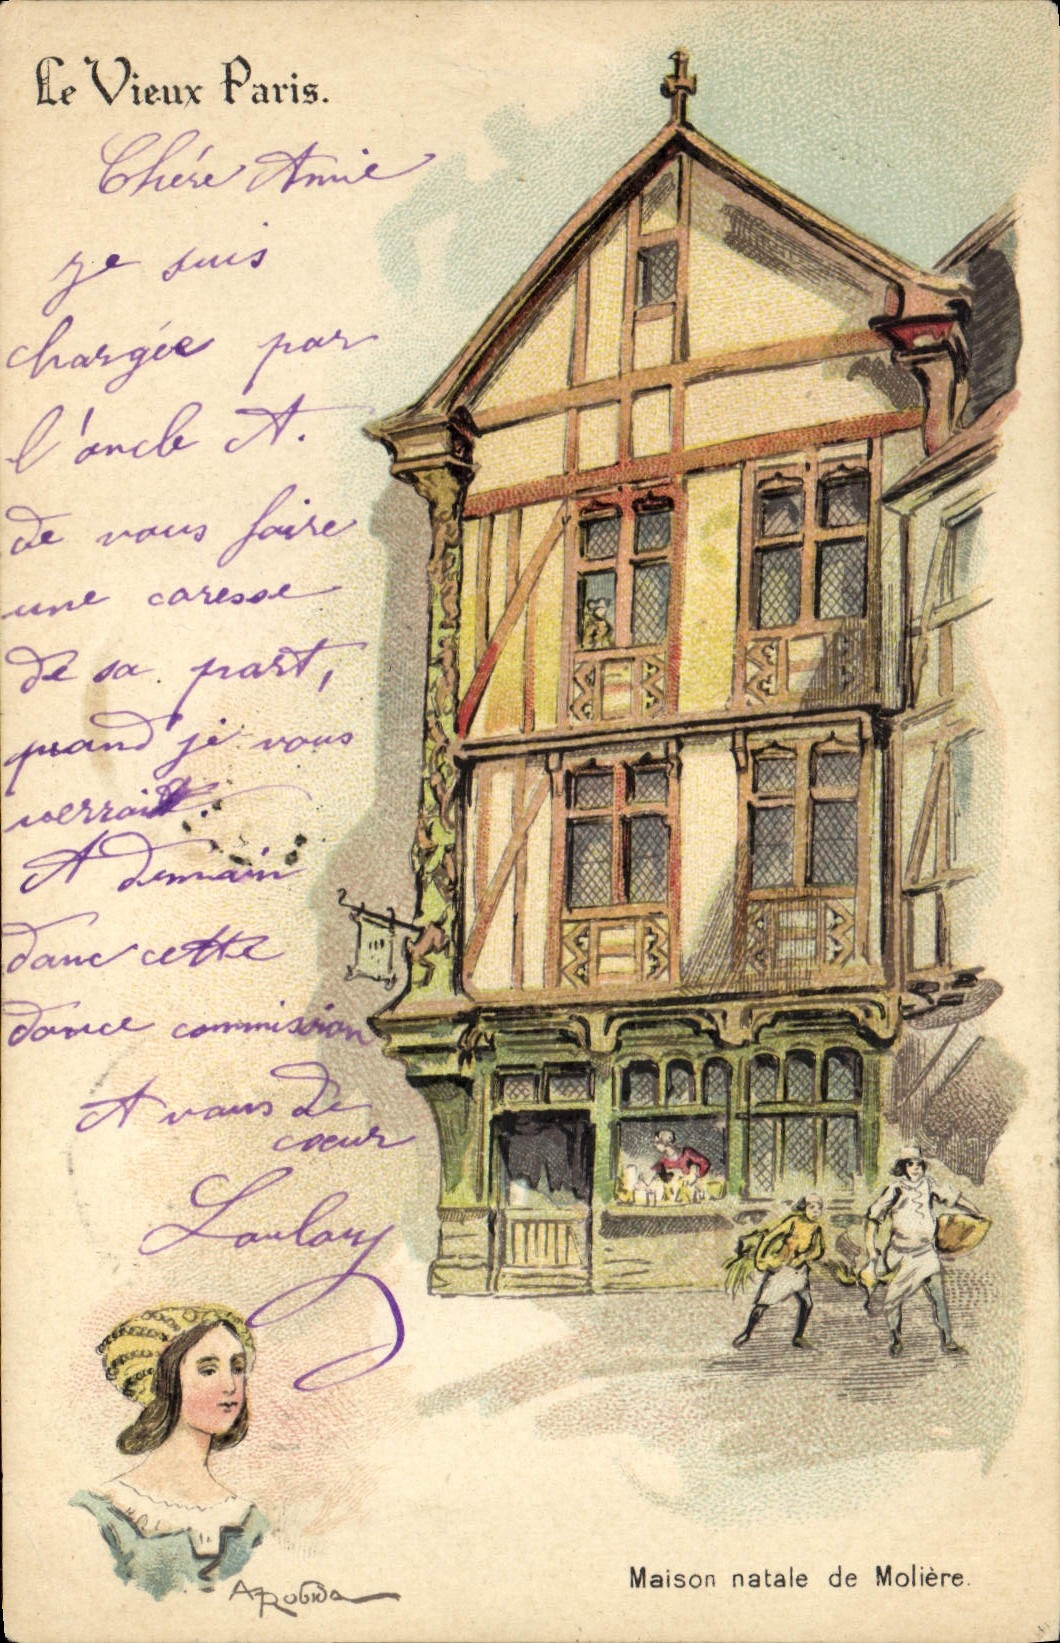 Le Vieux Paris.
Chére Amie
je suis
chargée par
l'oncle A.
de vous faire
une caresse
de sa part,
quand je vous
verrait.
A demain
donc cette
douce commission
A vous de
coeur
Loulou
A Robida
Maison natale de Molière.